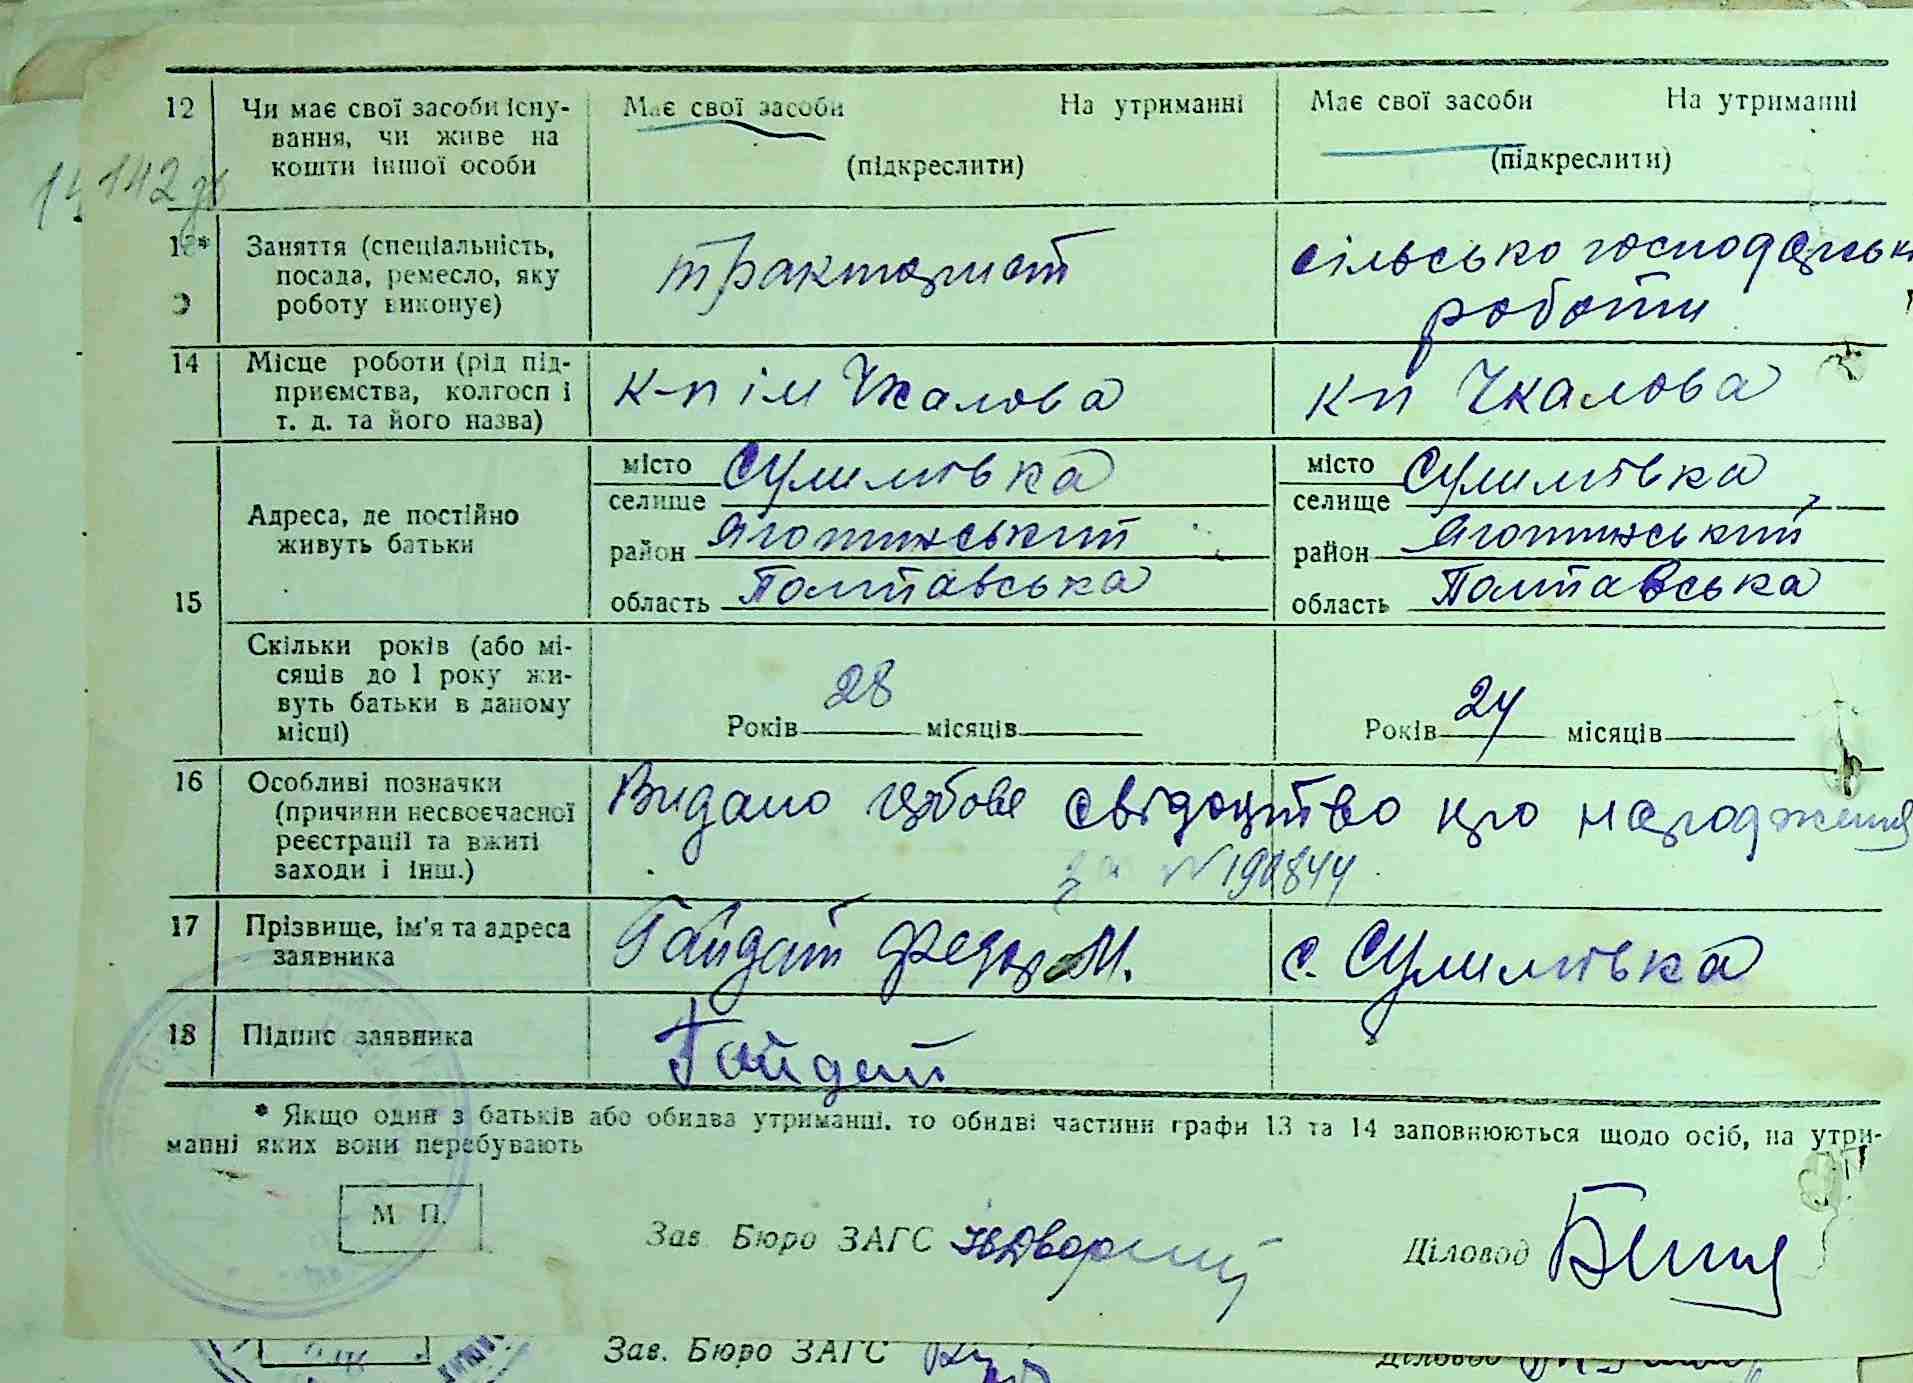 12 Чи має свої засоби існу- Має свої засоби На утриманні Має свої засоби На утриманні
вання, чи живе на
кошти іншої особи (підкреслити) (підкреслити)
142
13* Заняття (спеціальність, тракторист сільсько господарськ
посада, ремесло, яку
роботу виконує) роботи
14 Місце роботи (рід під- к-п ім Чкалова кп Чкалова
приємства, колгосп і
т. д. та його назва)
місто Сулимівка місто Сулимівка
селище селище
Адреса, де постійно
живуть батьки район Яготинський район Яготинський
15 область Полтавська область Полтавська
Скільки років (або мі-
сяців до 1 року жи-
вуть батьки в даному
місці) Років 28 місяців Років 24 місяців
16 Особливі позначки Видано гербове свідоцтво про народження
(причини несвоєчасної
реєстрації та вжиті
заходи і інш.) за N 190844
17 Прізвище, ім'я та адреса Гайдай Федор М. с. Сулимівка
заявника
18 Підпис заявника Гайдай
* Якщо один з батьків або обидва утриманні. то обидві частини графи 13 та 14 заповнюються щодо осіб, на утри-
манні яких вони перебувають
М П.
Зав. Бюро ЗАГС Діловод
Зав. Бюро ЗАГС Діловод